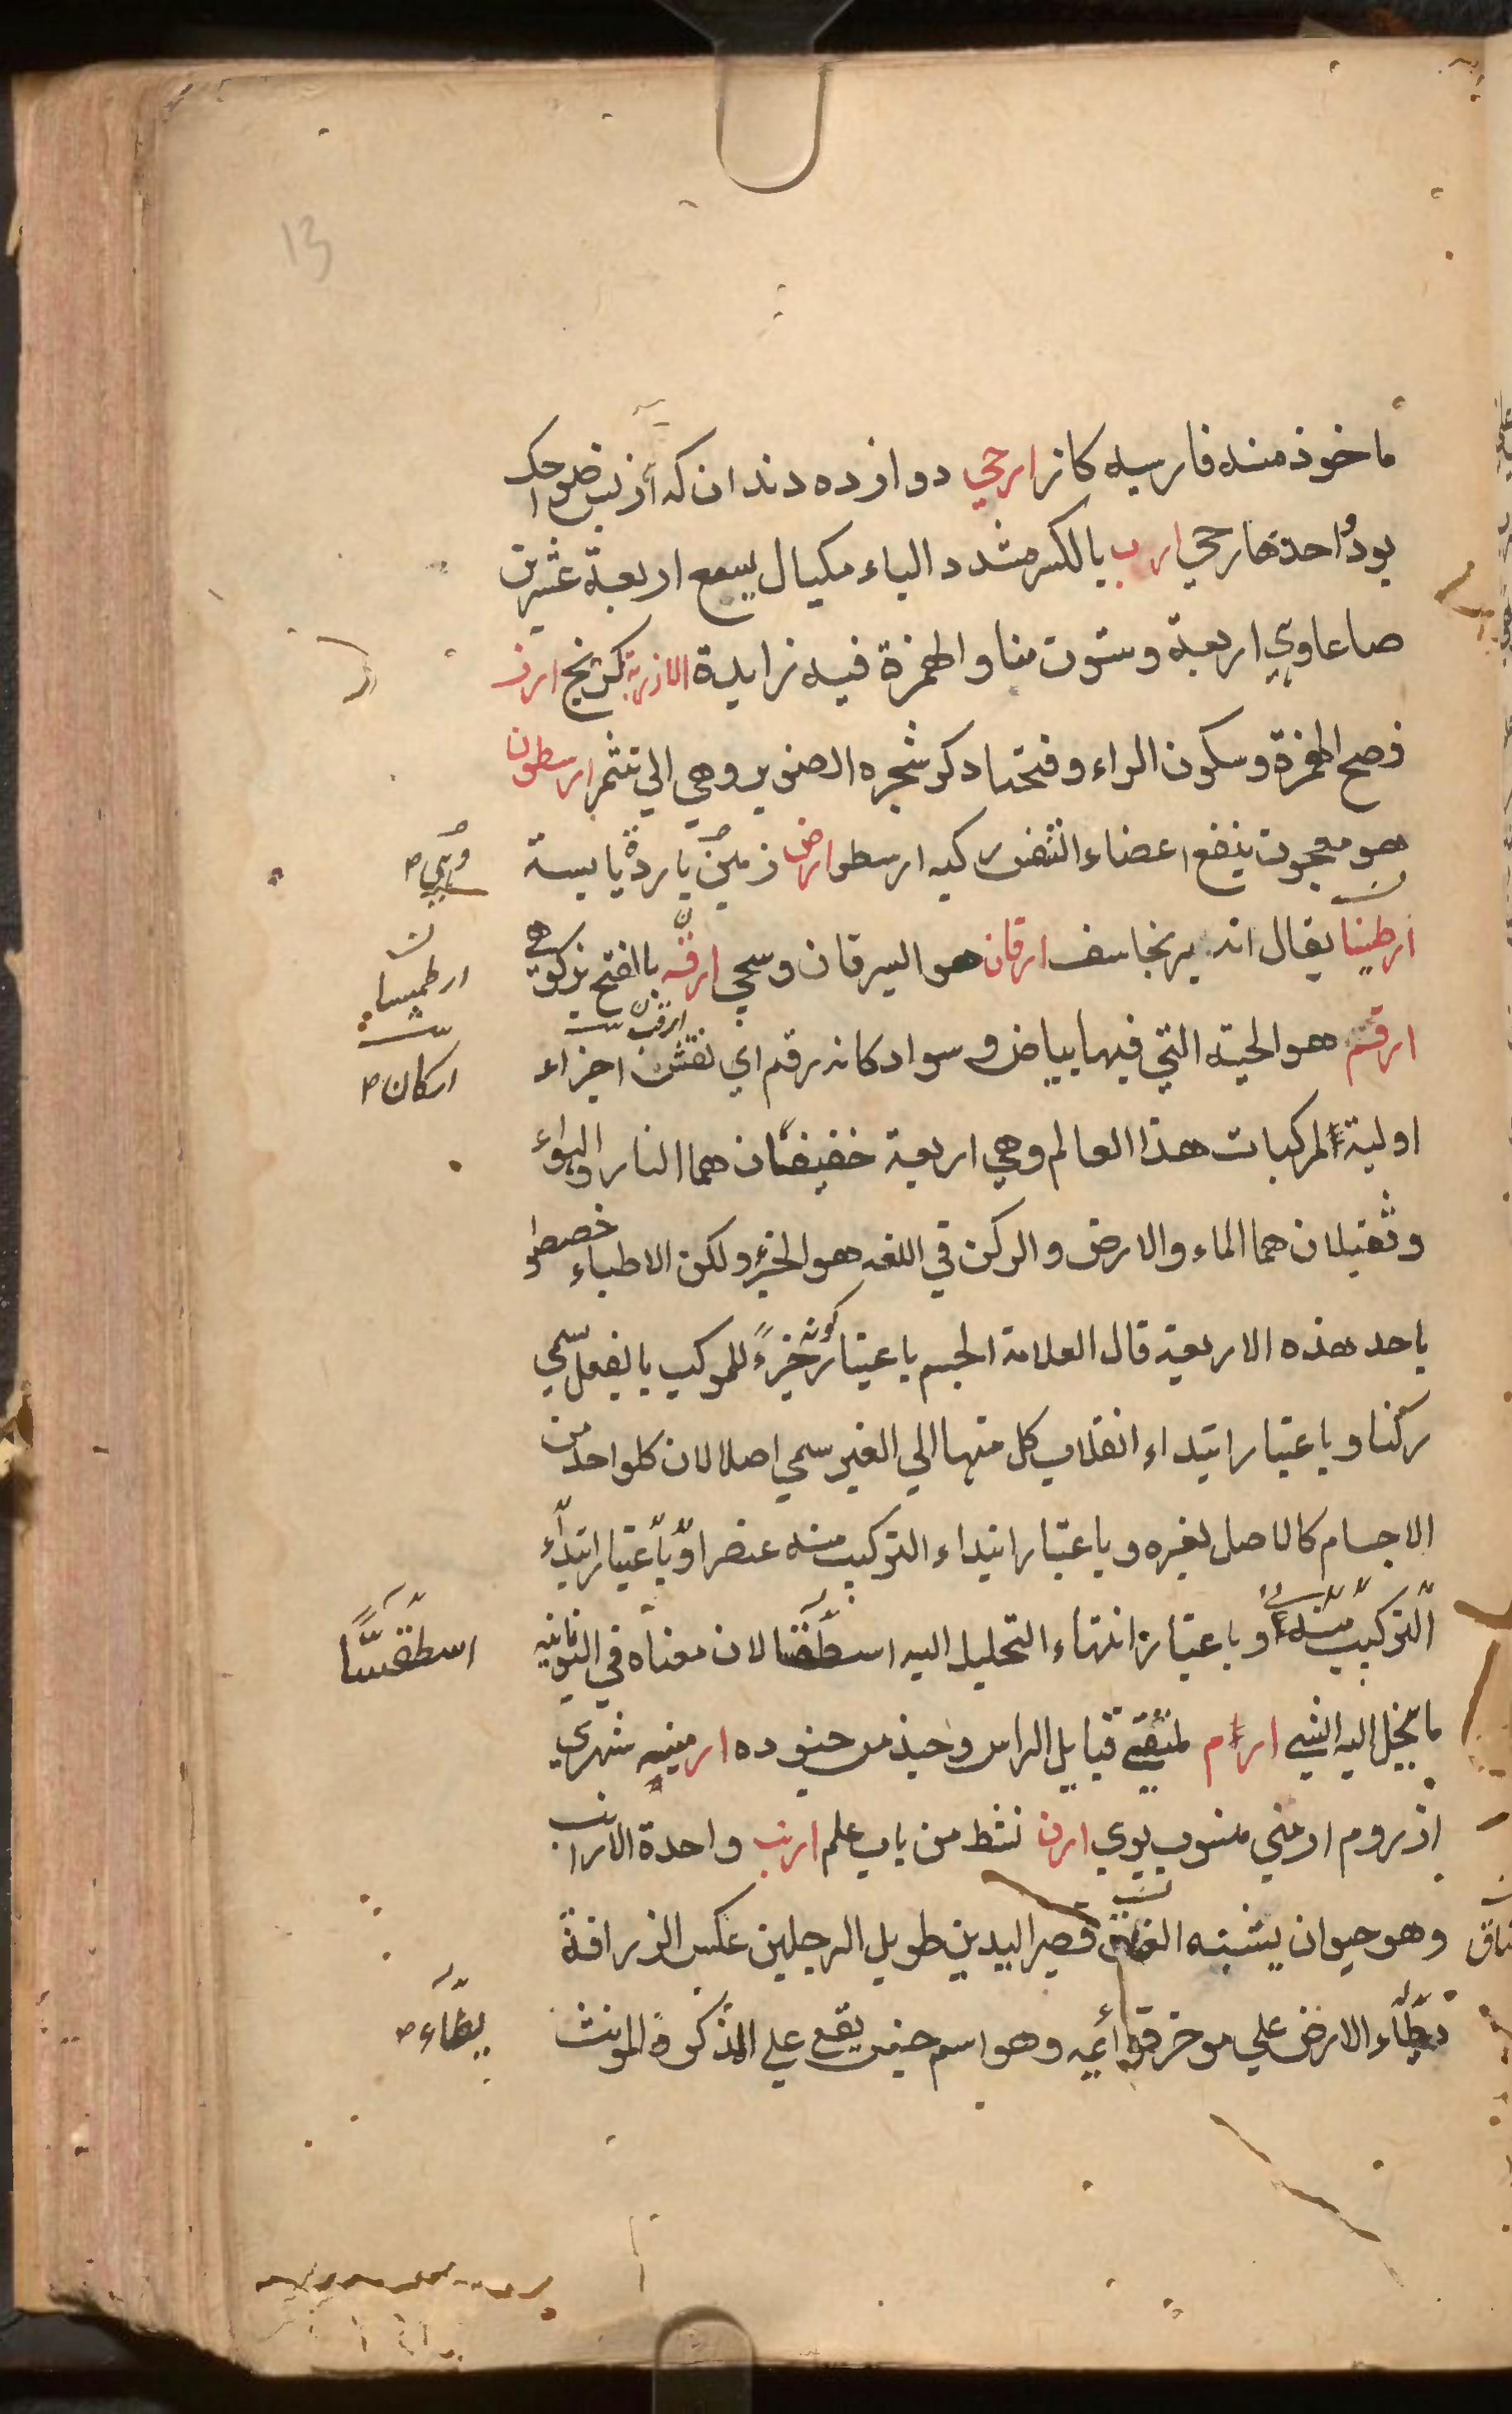 13
ماخوذ منه فارسيه كاز ارحي دوازده دندان كه از پس ضواحك
بود واحدتها رحي ارب بالكسر مشدد الباء مكيال يسع اربعة عشرين
صاعا وهي اربعة وستون منا والهمزة فيه زايدة الازربة كرنج ارز
فصح الهمزة وسكون الراء وفتحها ذكر شجره الصنوبر وهي الي تثمر ارسطون
هو معجون ينفع اعضاء النفس ركبه ارسطو ارض زمين باردة يابسة
وهي
ارطينا يقال انه برنجاسف ارقان هو اليرقان وسجي ارقّه بالفتح
ارطميسا
ارقم هو الحية التي فيها بياض وسواد كانه رقم اي نقش اجزاء
اركان
اولية لمركبات هذا العالم وهي اربعة خفيفتان هما النار والهواء
وثقيلان هما الماء والارض والركن في اللغه هو الجزء ولكن الاطباء خصصوا
باحد هذه الاربعة قال العلامة الجسم باعتبار كونه جزءً للمركب بالفعل سمي
ركنا وباعتبار ابتداء انقلاب كل منها الي الغير سمي اصلا لان كلواحد من
الاجسام كالاصل لغيره وباعتبار ابتداء التركيب منه عنصرا وباعتبار ابتداء
التركيب منه وباعتبار انتهاء التحليل اليه اسطقسا لان معناه في اليونانيه
اسطقسّا
ما ينحل اليه الشي ارام لمتقي قبايل الراس ارمنيه شهري
از روم ارمني منسوب بوي ارن نشط من باب علم ارنب واحدة الارانب
وهو حيوان يشبه العناق قصير اليدين طويل الرجلين عكس الزرافة
يطاء الارض علي موخر قوائمه وهو اسم جنس يقع علي الذكر والمونث
يطاء